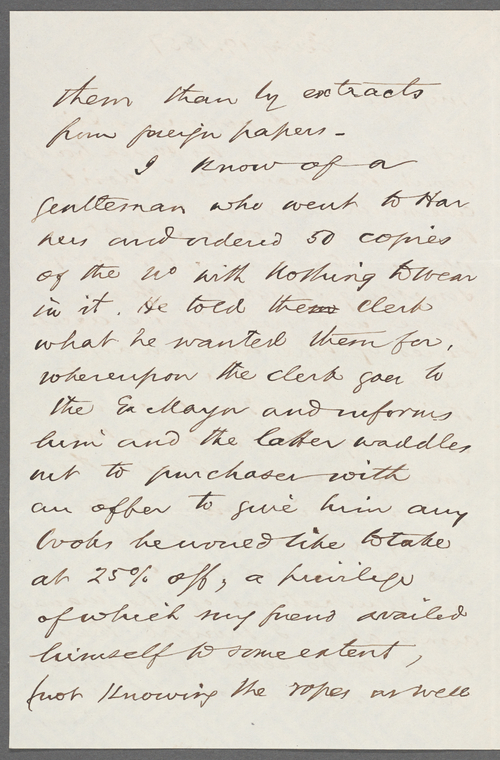 them than by extracts
from foreign papers -
I know of a
gentleman who went to Har
pers and ordered 50 copies
of the no with Nothing to wear
in it. He told them clerk
what he wanted them for,
whereupon the clerk goes to
the Ex Mayor and informs
him and the latter waddles
out to purchaser with
an offer to give him any
books he would like to take
at 25% off, a privilege
of which my friend availed
himself to some extent,
(not knowing the ropes as well